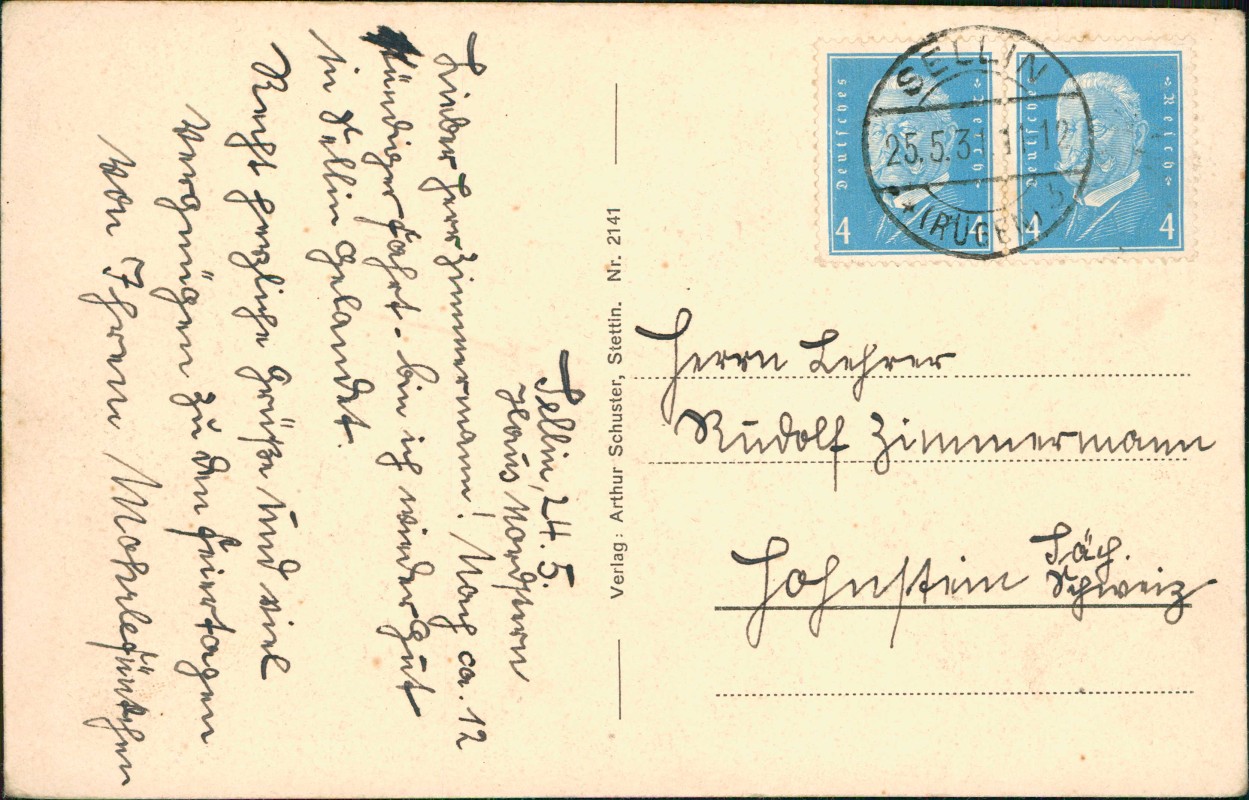 Sellin, 24.5.
Haus Nordstern
Lieber Herr Zimmermann! Nach ca. 12
stündiger Fahrt. bin ich wieder gut
in Sellin gelandet.
Recht herzliche Grüße und viel
Vergnügen zu den Feiertagen
von Ihrem
Verlag: Arthur Schuster, Stettin. Nr. 2141
Deutsches Reich
4 4
Deutsches Reich
4 4
SELLIN
25.5.31 11-12
* (RÜGEN) b
Herrn Lehrer
Rudolf Zimmermann
Hohnstein Säch.
Schweiz